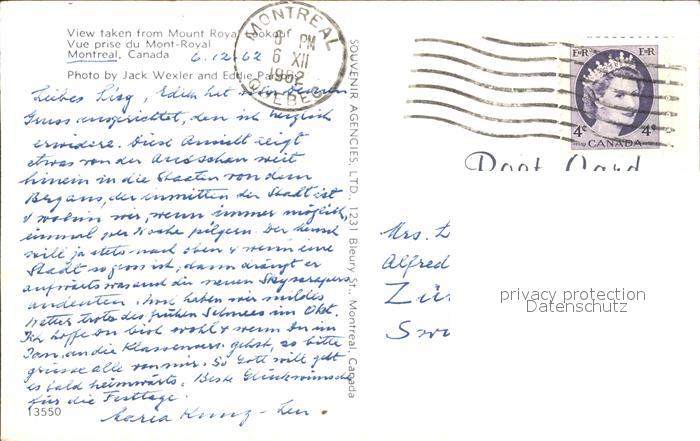 View taken from Mount Royal Lookout
Vue prise du Mont-Royal
Montreal, Canada 6.12.62
Photo by Jack Wexler and Eddie
Liebes Lisg, Edith hat mir Deinen
Gruss ausgerichtet, den ich herzlich
erwidere. Diese Ansicht zeigt
etwas von der Ausschau weit
hinein in die Staaten von dem
Berg aus, der inmitten der Stadt ist
& wohin wir, wenn immer möglich,
einmal per Woche pilgern. Der Mensch
will ja stets nach oben & wenn eine
Stadt so gross ist, dann drängt er
aufwärts was auch die neuen Skyscrapers
andeuten. Noch haben wir mildes
Wetter trotz des frühen Schnees im Okt.
Ich hoffe Du bist wohl & wenn Du im
Jan. an die Klassenvers. gehst, so bitte
grüsse alle von mir. So Gott will geht
es bald heimwärts. Beste Glückwünsche
für die Festtage.
Maria Kunz-
13550
SOUVENIR AGENCIES, LTD., 1231 Bleury St., Montreal, Canada
MONTREAL
PM
6 XII
1962
QUEBEC
EIIR EIIR
4¢ 4¢
CANADA
Post Card
Mrs.
Alfred
Zü
Sw
privacy protection
Datenschutz